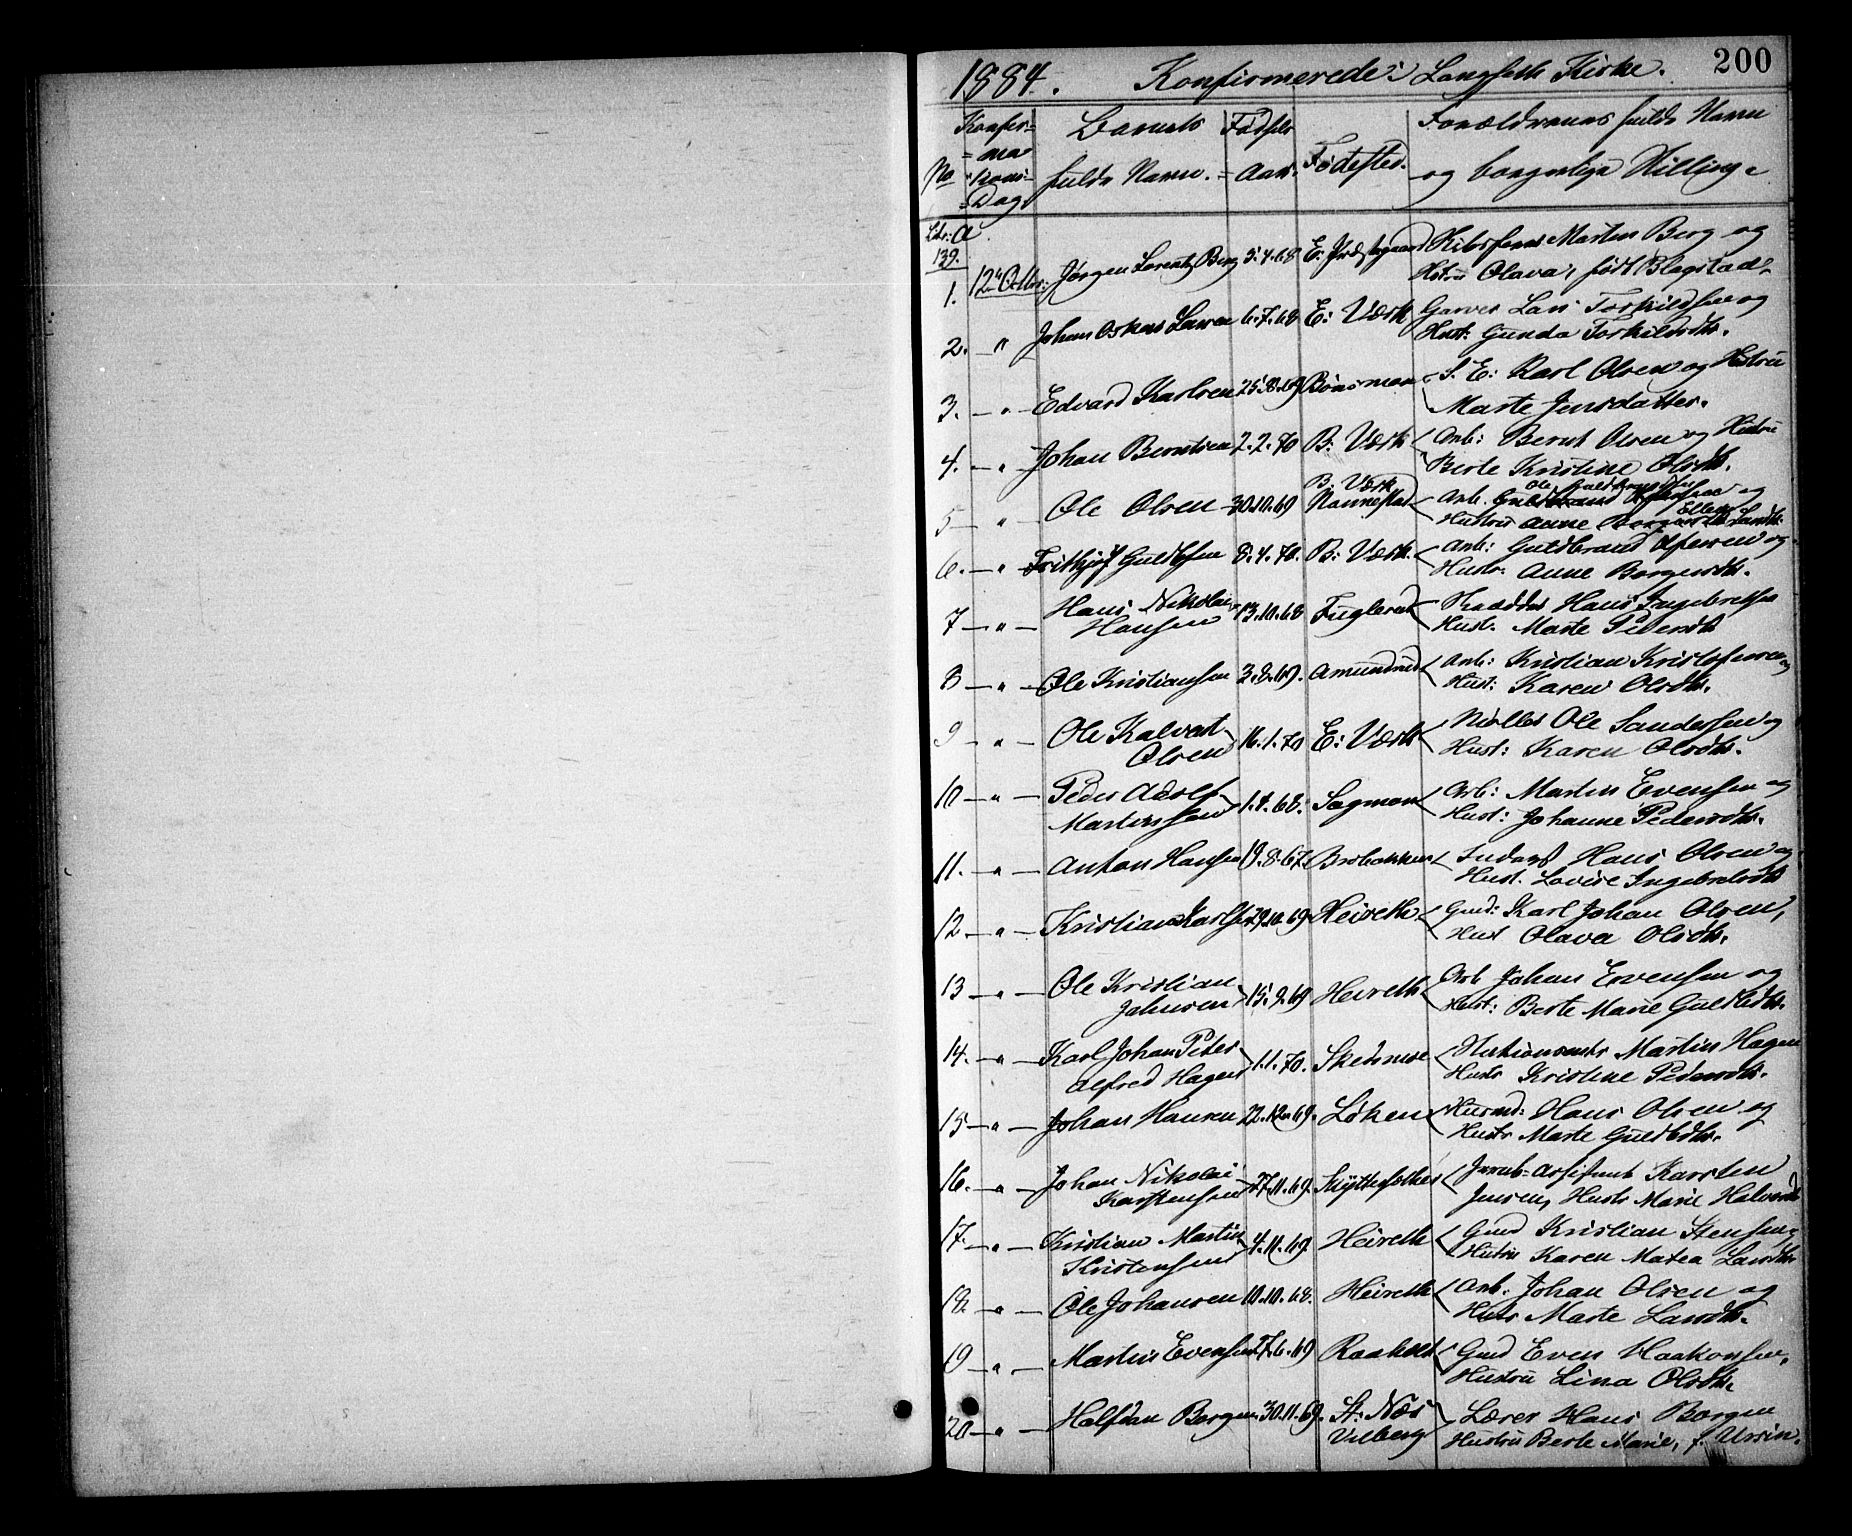 200
1884. Konfirmerede i Langseth Kirke.
No Konfirmations Dag. Barnets fulde Navn. Fødsels Aar. Fødested. Forældrenes fulde Navn og borgerlige Stilling.
Ltr: A 139.
1. 12te Octbr: Jørgen Lorentz Berg 5.4.68 E. Præstegaard Kirkes Morten Berg og
Hstru Olava, født Blagstad.
2. — " Johan Oskar Larsen 6.7.68 E: Værk Garver Lars Torkildsen og
Hust: Gunda Torkildsdtr.
3. — " — Edvard Karlsen 25.8.69 Bønsmoen S. E: Karl Olsen og Hustru
Marte Jensdatter.
4. — " — Johan Berntsen 2.2.70 B: Værk Arb: Bernt Olsen og Hustru
Berte Kristine Olsdtr.
B. Værk Ole Guldbrandsen
5 — " Ole Olsen 30.10.69 Nannestad Arb. Guldbrand og
Hustru Anne Ellen Larsdtr.
6. — " — Frithjof Guldbrsen 8.4.70. B: Værk. Arb: Guldbrand og
Hustr. Anne Borgersdtr.
7 — " — Hans Nikolai 13.10.68 Fuglerud Skrædder Hans Ingebretsen
Hansen Hust. Marte Pedersdtr
8 — " — Ole Kristiansen 3.8.69. Amundrud Arb: Kristian Kristofersen og
Hust: Karen Olsdtr.
9 — " — Ole Kalvest 16.1.70 E: Værk Møller Ole Sandersen og
Olsen Hust: Karen Olsdtr.
10 — " — Peder Adolf 1.4.68. Sagmoen Arb: Martin Evensen og
Martinsen Hust: Johanne Pedersdtr.
11. — " — Anton Hansen 19.8.67. Brobakken Inderst Hans Olsen og
Hust. Lovise Ingebretsdtr
12 — " — Kristian Karlsen 29.10.69 Heireth. Gmd: Karl Johan Olsen,
Hust Olava Olsdtr.
13 — " — Ole Kristian 15.9.69 Heireth Arb Johan Evensen og
Johnsen Hust: Berte Marie Guldbrdtr.
14. — " — Karl Johan Peter 1.1.70. Skedsmoe Stationsmstr Martin Hagen
Alfred Hagen Hustr Kristine Pedersdtr.
15 — " — Johan Hansen 22.12.69. Løken Husmd: Hans Olsen og
Hustr Marte Guldbdtr.
16. — " — Johan Nikolai 27.11.69. Jernb-Assistent Karsten
Karstensen Jensen, Hustr Marie Halvorsdtr
17. — " — Kristian Martin 4.11.69 Heireth Gmd Kristian Stensen,
Kristensen Hustru Karen Matea Larsdtr.
18. — " — Ole Johansen 10.10.68. Heireth Arb: Johan Olsen og
Hustr Marte Larsdtr.
19 — " — Martin Evensen 27.6.69 Raaholt Gmd Even Haakonsen,
Hustru Lina Olsdtr.
20 — " — Halfdan Borgen 30.11.69. St: Næs Lærer Hans Borgen
Vilberg Hustru Berte Marie, f. Ursin.